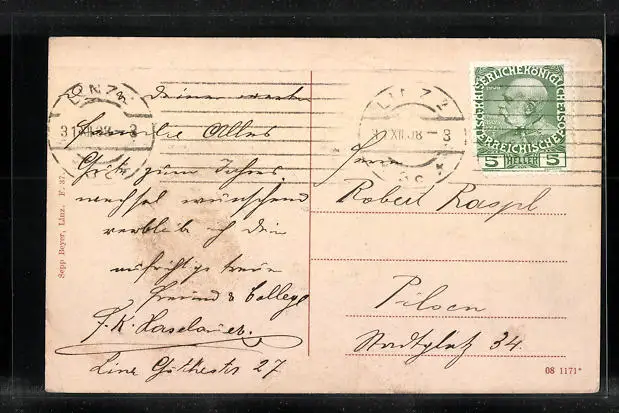 LINZ 2
31.XII.08-3
LINZ 2
31.XII.08-3
KAISERLICHEKÖNIGLICHE
ÖSTERREICHISCHE
5 HELLER 5
Deiner werten
Familie Alles
Gute zum Jahres
wechsel wünschend
verbleib ich Dein
aufrichtig treuer
Freund & College
F. K. Haselauer.
Linz Göthestr 27
Herrn
Robert Raspl
Pilsen
Stadtplatz 34.
Sepp Beyer, Linz. F. 37.
08 1171*